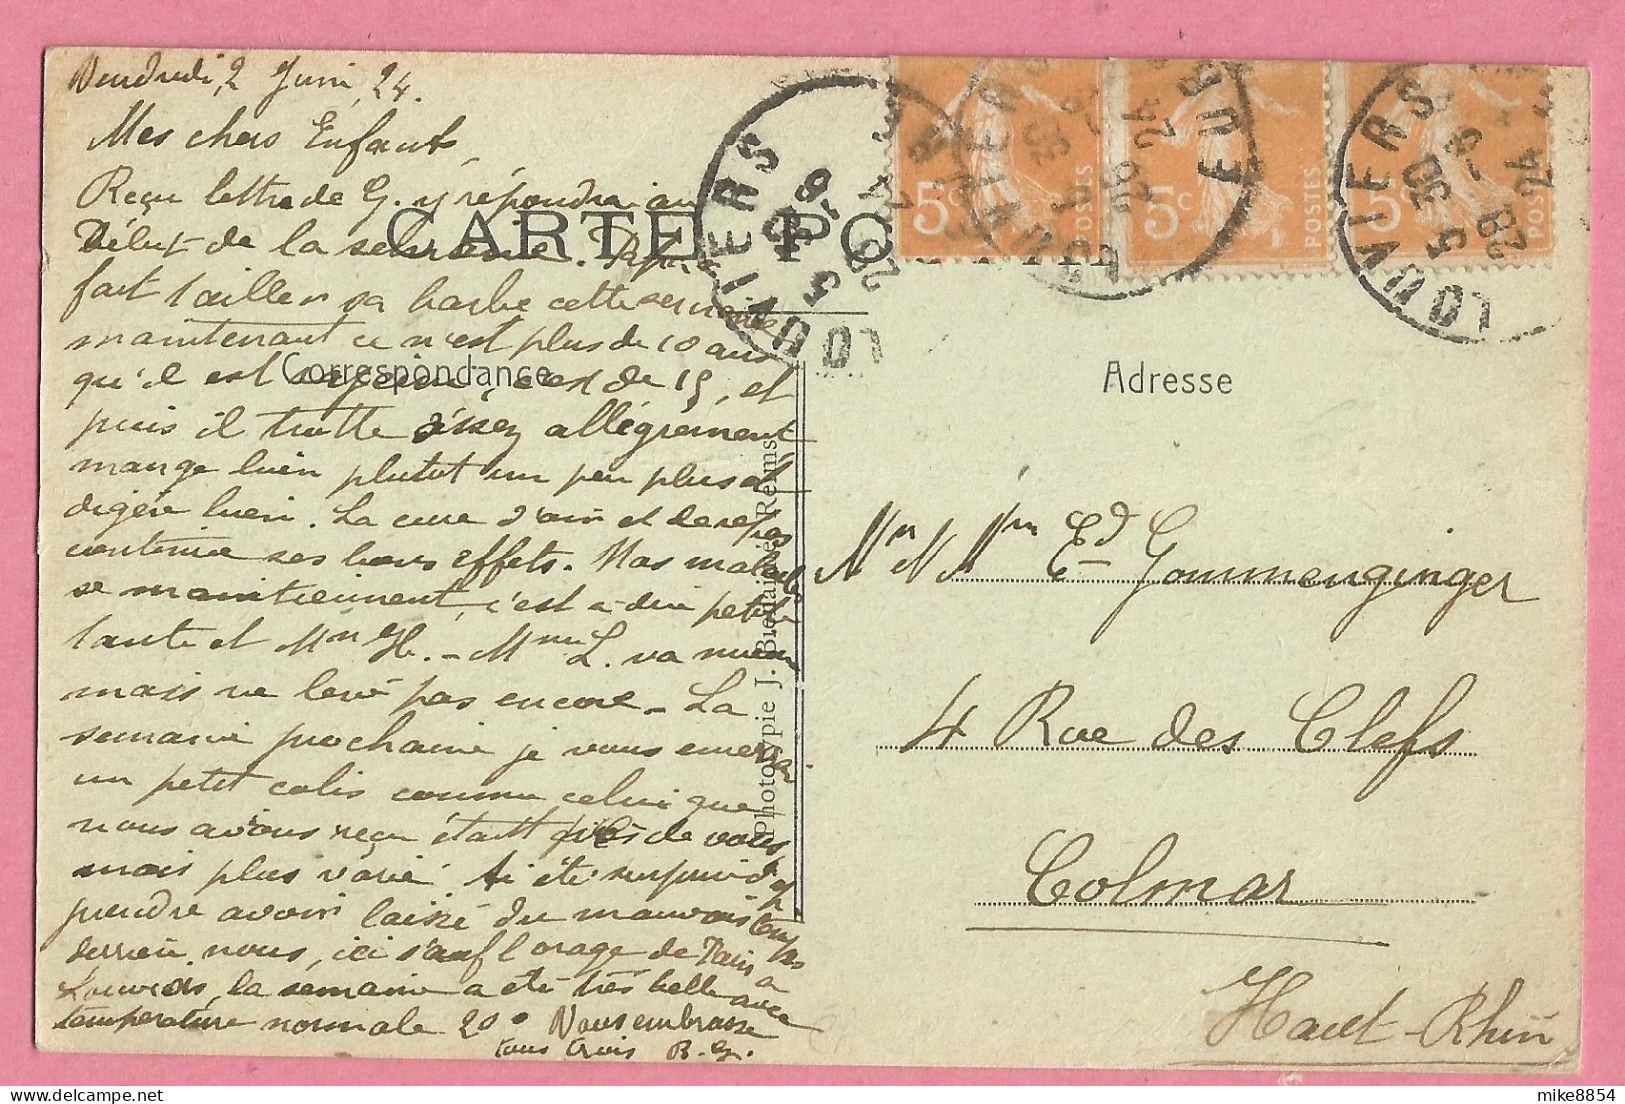 Vendredi, 2 Juin, 24.
Mes chers Enfants,
Reçu lettre de G. y répondrai au
Début de la semaine.
fait tailler sa barbe cette semaine
maintenant ce n'est plus de 10 ans
qu'il est rajeuni, c'est de 15, et
puis il trotte assez allégrement
mange bien plutot un peu plus et
digère bien. La cure d'air et de repos
continue ses bons effets. Nos malades
se maintiennent, c'est a-dire petite
tante et Mr H. - Mme L. va mieux
mais ne lève pas encore - La
semaine prochaine je vous enverrai
un petit colis comme celui que
nous avons reçu de vous
mais plus varié. Ai été surpris d'ap
prendre avoir laissé du mauvais temps
derrière nous, ici sauf l'orage de Paris a
Louviers, la semaine a été très belle avec
température normale 20° Vous embrasse
tous trois R. G.
CARTE PO
Correspondance
Adresse
Phototypie J. Bienaimé, Reims
5c POSTES
5c POSTES
5c POSTES
LOUVIERS
LOUVIERS EURE
LOUVIERS
Mr & Mme Ed Gommenginger
4 Rue des Clefs
Colmar
Haut-Rhin
mike8854